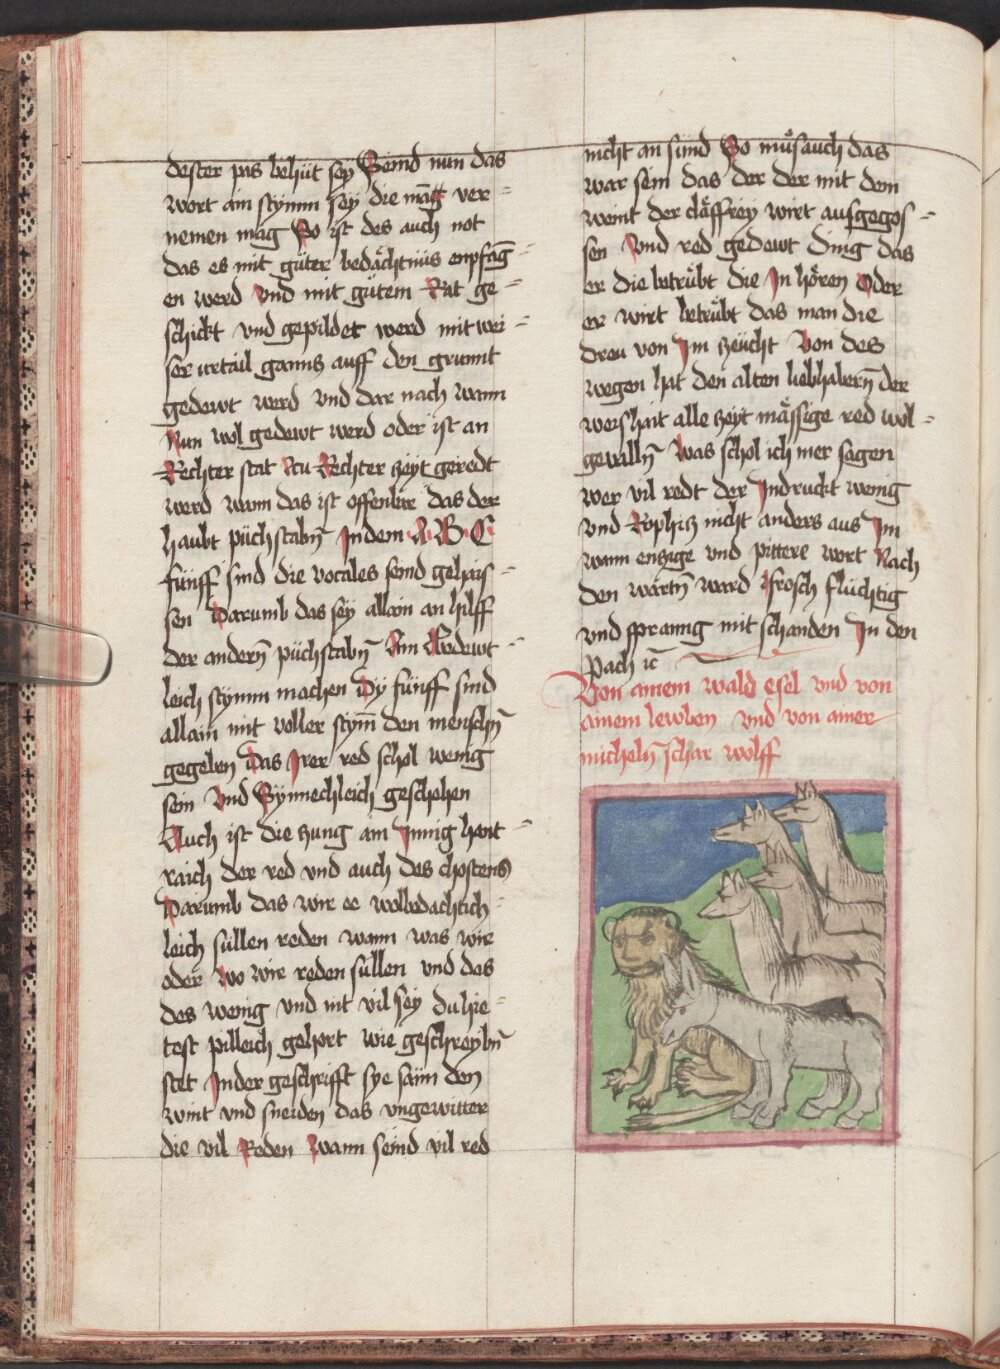 dester pas behüt sey Seind nun das
wort ain stymm sey die mag ver=
nemen mag So ist des auch not
das es mit guter bedächtnus enpfāg=
en werd Vnd mit gutem Rat ge=
schickt vnd gepildet werd mit wei=
ser vrtail ganns auff den grunnt
gedewt werd vnd dar nach wann
Nun wol gedewt werd oder ist an
Rechter stat Zu Rechter zeyt geredt
werd wann das ist offenbir das der
haubt püchstabn̄ In dem A B C
fünff sind die vocales seind gehais=
sen Darumb das sey allain an hilff
der andern̄ püchstabn̄ Ain Bedewt=
leich stymm machen Dy fünff sind
allain mit voller stym̄ den menschn̄
gegeben Das Irer red schol wenig
sein Vnd Synnechleich geschehen
Auch ist die zung ain Innig hant=
raich der red vnd auch des chostens
Darumb das wir ee wolbedachtich=
leich süllen reden wann was wir
oder wo wir reden süllen vnd des
des wenig vnd nit vil sey du hie=
test pilleich gehort wie geschreybn̄
stet In der geschrifft sye säin den
wint vnd sneiden das vngewitter
die vil Reden Wann seind vil red
nicht an sünd So müs auch das
war sein das der der mit dem
weint der cläffrey wirt ausgegos=
sen Vnd red gedewt ding das
er die betrübt die In hören Oder
er wirt betrübt das man die
drew von Im zeücht Von des
wegen hat den alten liebhabern̄ der
weishait alle zeyt mässige red wol=
geualln̄ Was schol ich mer sagen
wer vil redt der Indruckt wenig
vnd Rophitz nicht anders aus Im
wann enhige vnd pittere wort Nach
den wartn̄ ward Ifrosch fluchtig
vnd spranng mit schanden In den
Pach ꝛc̄
Von ainem wald esel vnd von
ainem lewben vnd von ainer
micheln̄ schar wolff